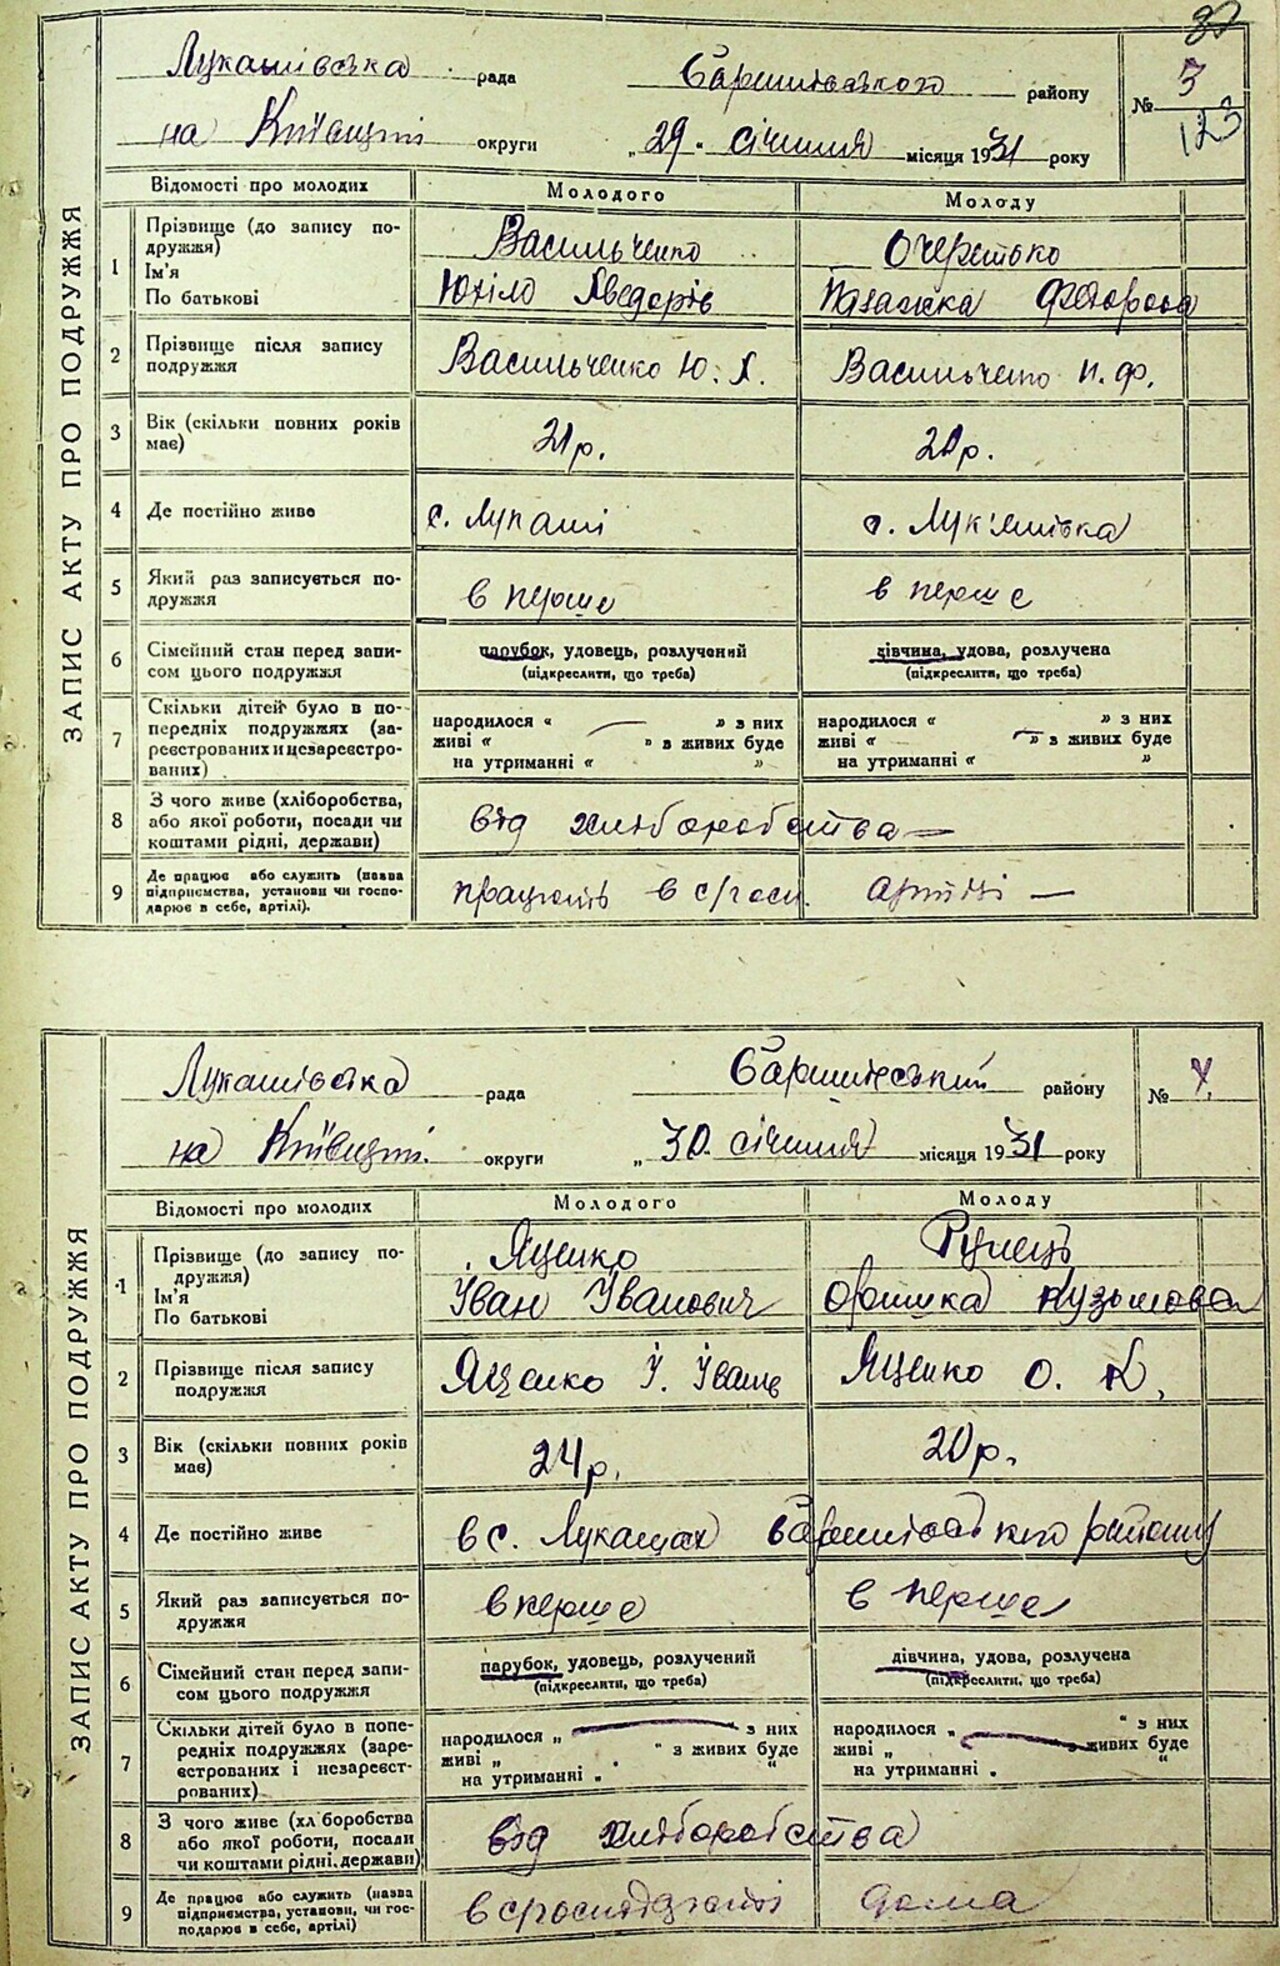 Лукашівська рада Баришівського району № 3
на Київщині округи „29“ січиння місяця 1931 року 123
ЗАПИС АКТУ ПРО ПОДРУЖЖЯ
Відомості про молодих Молодого Молоду
1 Прізвище (до запису подружжя) Васильченко Очеретько
Ім'я
По батькові Федорова
2 Прізвище після запису подружжя Васильченко Ю. Х. Васильченко П. Ф.
3 Вік (скільки повних років має) 21 р. 20 р.
4 Де постійно живе с. Лукаші с. Лук'янівка
5 Який раз записується подружжя в перше в перше
6 Сімейний стан перед записом цього подружжя парубок, удовець, розлучений дівчина, удова, розлучена
(підкреслити, що треба) (підкреслити, що треба)
7 Скільки дітей було в попередніх подружжях (зареєстрованих и незареєстрованих) народилося « — » з них народилося « » з них
живі « » з живих буде живі « — » з живих буде
на утриманні « » на утриманні « »
8 З чого живе (хліборобства, або якої роботи, посади чи коштами рідні, держави) від хліборобства —
9 Де працює або служить (назва підприємства, установи чи господарює в себе, артілі). працюють в с/госп. артілі —
Лукашівська рада Баришівський району № 4.
на Київщині округи „30. січиння місяця 1931 року
ЗАПИС АКТУ ПРО ПОДРУЖЖЯ
Відомості про молодих Молодого Молоду
1 Прізвище (до запису подружжя) Яценко
Ім'я
По батькові Іван Іванович Оришка Кузьмова
2 Прізвище після запису подружжя Яценко І. Іванів Яценко О. К.
3 Вік (скільки повних років має) 24 р. 20 р.
4 Де постійно живе в с. Лукашах Баришівського району
5 Який раз записується подружжя в перше в перше
6 Сімейний стан перед записом цього подружжя парубок, удовець, розлучений дівчина, удова, розлучена
(підкреслити, що треба) (підкреслити, що треба)
7 Скільки дітей було в попередніх подружжях (зареєстрованих і незареєстрованих) народилося „ — “ з них народилося „ — “ з них
живі „ “ з живих буде живі „ “ з живих буде
на утриманні „ “ на утриманні „ “
8 З чого живе (хліборобства або якої роботи, посади чи коштами рідні, держави) від хліборобства
9 Де працює або служить (назва підприємства, установи, чи господарює в себе, артілі) дома